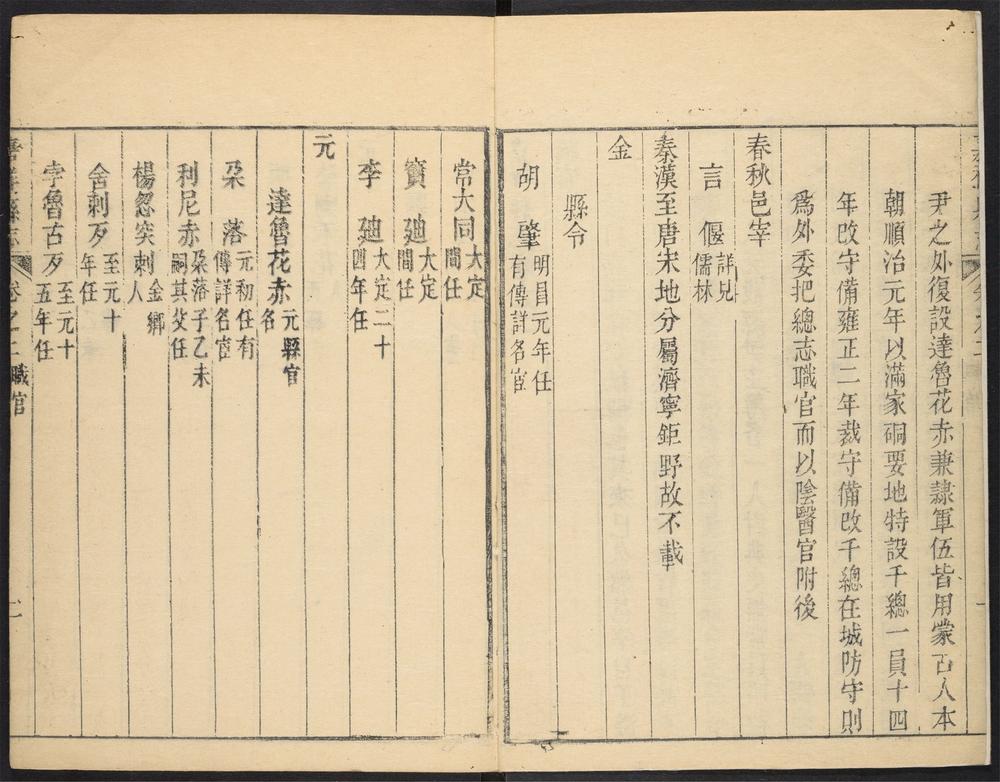 尹之外復設達魯花赤兼隷軍伍皆用蒙古人本
朝順治元年以滿家硐要地特設千總一員十四
年改守備雍正二年裁守備改千總在城防守則
爲外委把總志職官而以陰醫官附後
春秋邑宰
言偃詳見儒林
秦漢至唐宋地分屬濟寧鉅野故不載
金
縣令
胡肇明昌元年任有傳詳名宦
常大同大定間任
竇廸大定間任
李廸大定二十四年任
元
達魯花赤元縣官名
朶落元初任有傳詳名宦
利尼赤朶落子乙未嗣其父任
楊忽突刺金鄉人
舍刺歹至元十年任
孛魯古歹至元十五年任
縣志 卷之二 職官 二